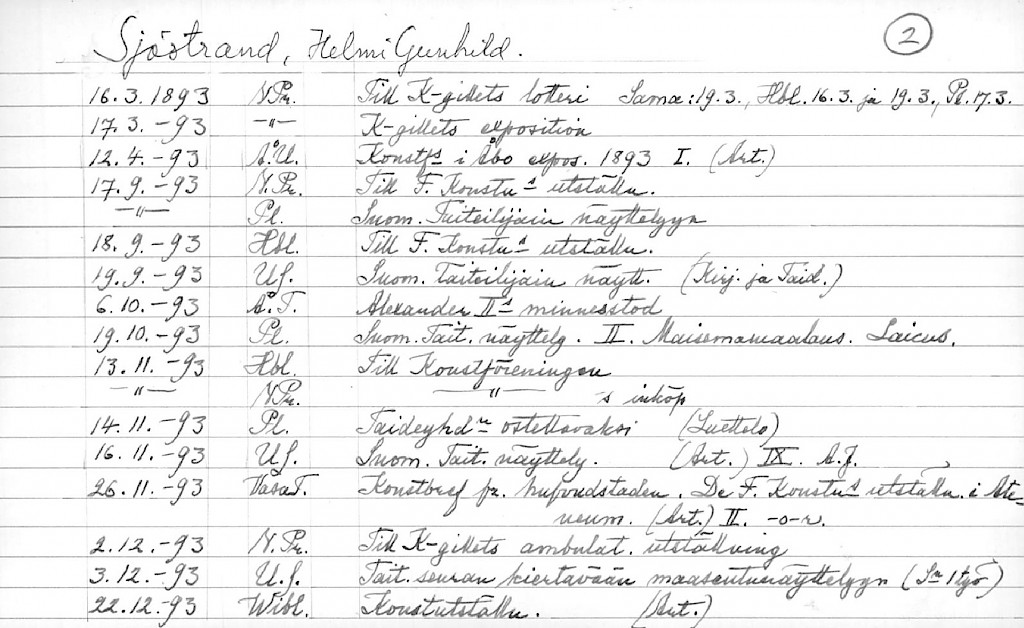 Sjöstrand, Helmi Gunhild. 2
16.3.1893 N.Pr. Till K-gillets lotteri Sama: 19.3., Hbl. 16.3. ja 19.3., Pl. 17.3.
17.3.-93 -"- K-gillets exposition
12.4.-93 Å.U. Konstfs i Åbo expos. 1893 I. (Art.)
17.9.-93 N.Pr. Till F. Konstn.s utställn.
-"- Pl. Suom. Taiteilijain näyttelyyn
18.9.-93 Hbl. Till F. Konstn.s utställn.
19.9.-93 U.S. Suom. Taiteilijain näytt. (Kirj. ja Taid.)
6.10.-93 Å.T. Alexander II's minnesstod
19.10.-93 Pl. Suom. Tait. näyttely. II. Maisemamaalaus. Laicus.
13.11.-93 Hbl. Till Konstföreningen
-"- N.Pr. -"- s inköp
14.11.-93 Pl. Taideyhd:n ostettavaksi (Luettelo)
16.11.-93 U.S. Suom. Tait. näyttely. (Art.) IX. A.J.
26.11.-93 Vasa T. Konstbref fr. hufvudstaden. De F. Konstn.s utställn. i Ate-
neum. (Art.) II. -o-r.
2.12.-93 N.Pr. Till K-gillets ambulat. utställning
3.12.-93 U.S. Tait. seuran kiertävään maaseutunäyttelyyn (S:n 1 työ)
22.12-93 Wibl. Konstutställn. (Art.)